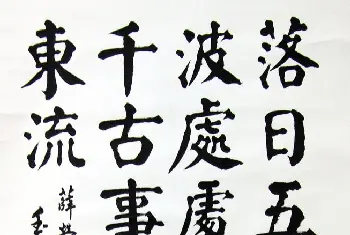 落日五
波處處
千古事
東流
薛